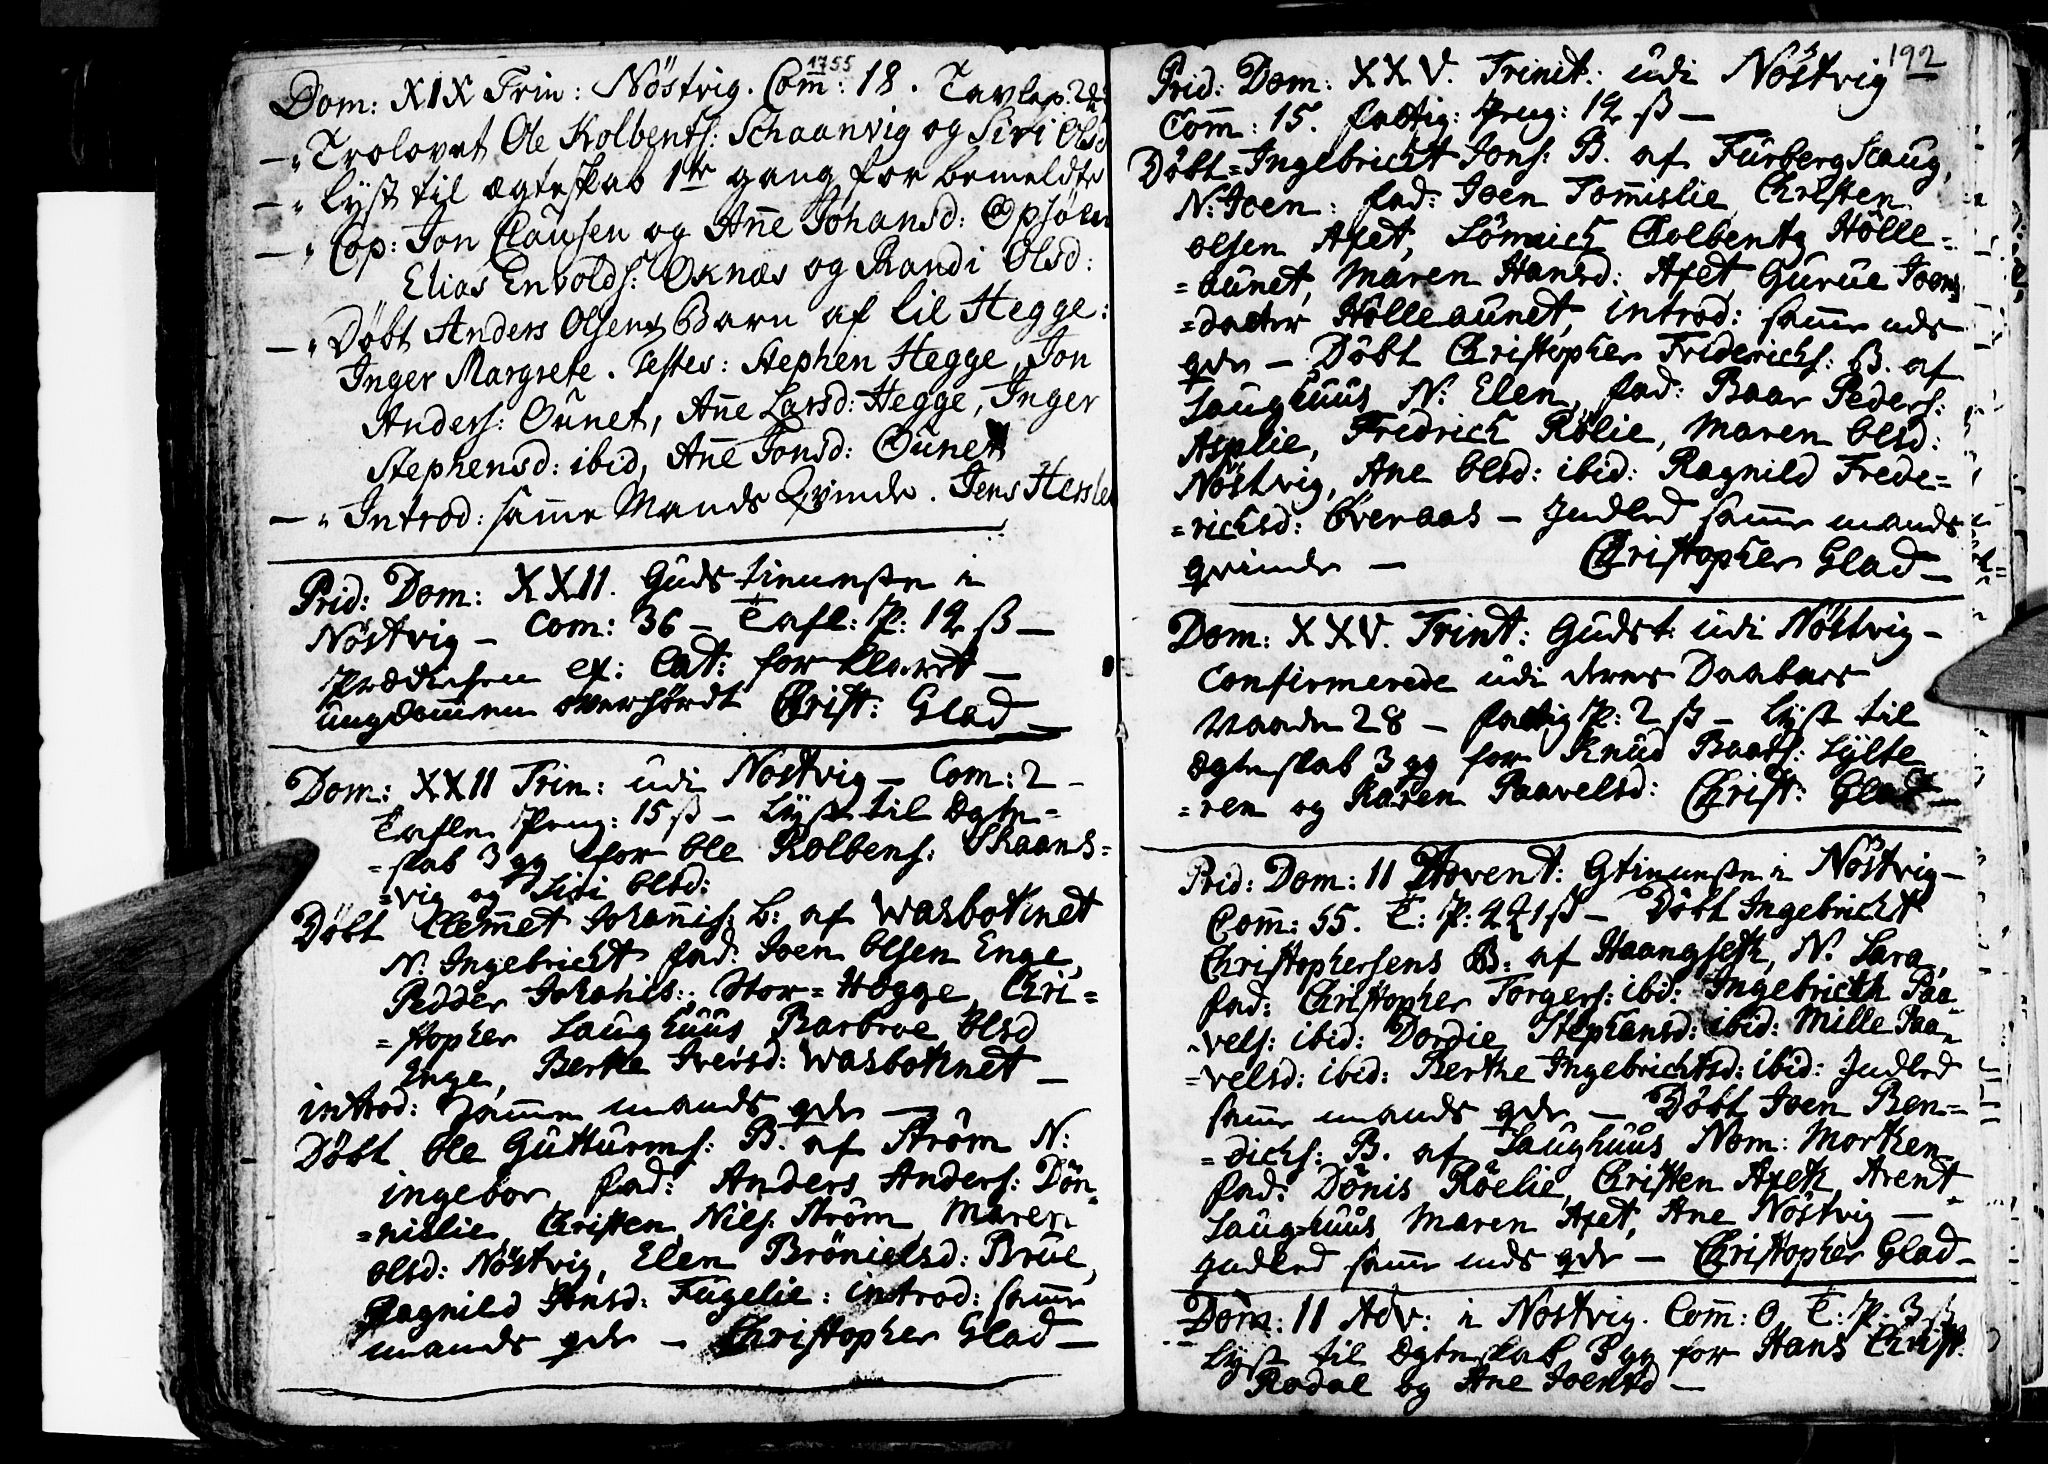 1755
Dom: XIX Trin: Nöstvig. Com̅: 18. Tavlep. 22
Trolovet Ole Kolbents: Schaanvig og Siri Olsd
Lÿst til ægteskab 1te gang for bemeldte
Cop: Jon Clausen og Añe Johansd: Opsölen
Elias Envolds: Oknæs og Randi Olsd:
Döbt Anders Olsens Barn af lil Hegge:
Inger Margrete. Testes: Stephen Hegge, Jon
Anders: Öunet, Añe Larsd: Hegge, Inger
Stephensd: ibid, Añe Jonsd: Öunet
Introd: sam̅e Mands Qvinde. Jens Hersleb
Prid: Dom: XXII. Guds tienesten i
Nöstvig – Com: 36 – Tafl: P: 12 ß –
Prædichen ex: Cat: forklaret –
ungdom̅en overhördt Christ: Glad –
Dom: XXII Trin: udi Nöstvig – Com: 2 –
Tafle Peng: 15 ß – Lyst til Ægte=
=skab 3 gg for Ole Kolbens: Skaans=
=vig og Siri Olsd:
Döbt Clem̅et Johañis: b: af Wasbotnet
N: Ingebricht fad: Joen Olsen Enge,
Pedder Johanis:, Stor=Hegge, Chri=
=stopher Saughuus Barbroe Olsd
Enge, Berthe Iversd: Wasbotnet –
introd: sam̅e mands qde –
Döbt Ole Gutturms: B. af Ström N:
ingebor, fad: Anders Anders: Dön=
=nislie, Christen Niels: Ström, Maren
Olsd: Nöstvig, Elen Brönielsd: Brue,
Ragnild Jonsd: Fugelie: introd: sam̅e
mands qde – Christopher Glad –
192
Prid: Dom: XXV. Trinit: udi Nöstvig
Com̅: 15. fattig: Peng: 12 ß –
Döbt=Ingebricht Jons: B. af Furberg Scaug,
N: Joen: fad: Joen Tom̅islie, Christen
Olsen Axet, Colbents Hölle=
=aunet, Maren Hansd: Axet, Gurue Joens
=datter Hölleaunet, introd: sam̅e mds
qde – Döbt Christopher Friderichs: B. af
Saughuus N: Elen, fad: Baar Peders:
Asplie, Fredrich Rölie, Maren Olsd:
Nöstvig, Ane Olsd: ibid: Ragnild Frede=
=richsd: Överaas – Indled sam̅e mands
qvinde – Christopher Glad –
Dom: XXV. Trint: Gudst: udi Nöstvig –
Confirmerede udi deres Daabes
Naade 28 – fattig P: 2 ß – Lyst til
Ægteskab 3 gg for Knud Baads: Sylte
=ren og Karen Paavelsd: Christ: Glad –
Prid: Dom: 11 Advent: Gtienesten i Nöstvig –
Com̅: 55. T: P: – Döbt Ingebricht
Christophersens B: af Haangseth, N. Sara,
fad: Christopher Torgers: ibid: Ingebricth Paa=
=vels: ibid: Dordie Stephansd: ibid: Mille Paa=
=velsd: ibid: Berthe Ingebrichtsd: ibid: Indled
sam̅e mands qde – Döbt Joen Ben=
=dichs: B. af Saughuus Nom: Morthen
fad: Dönis Röelie, Christen Axeth, Arent
Saughuus, Maren Axet, Ane Nöstvig –
Indled sam̅e mds qde – Christopher Glad –
Dom: 11 Adv: i Nöstvig. Com̅: 0 T: P: 3 ß
Lyst til Ægteskab 3 gg for Hans Christ:
Rodal og Ane Joensd –